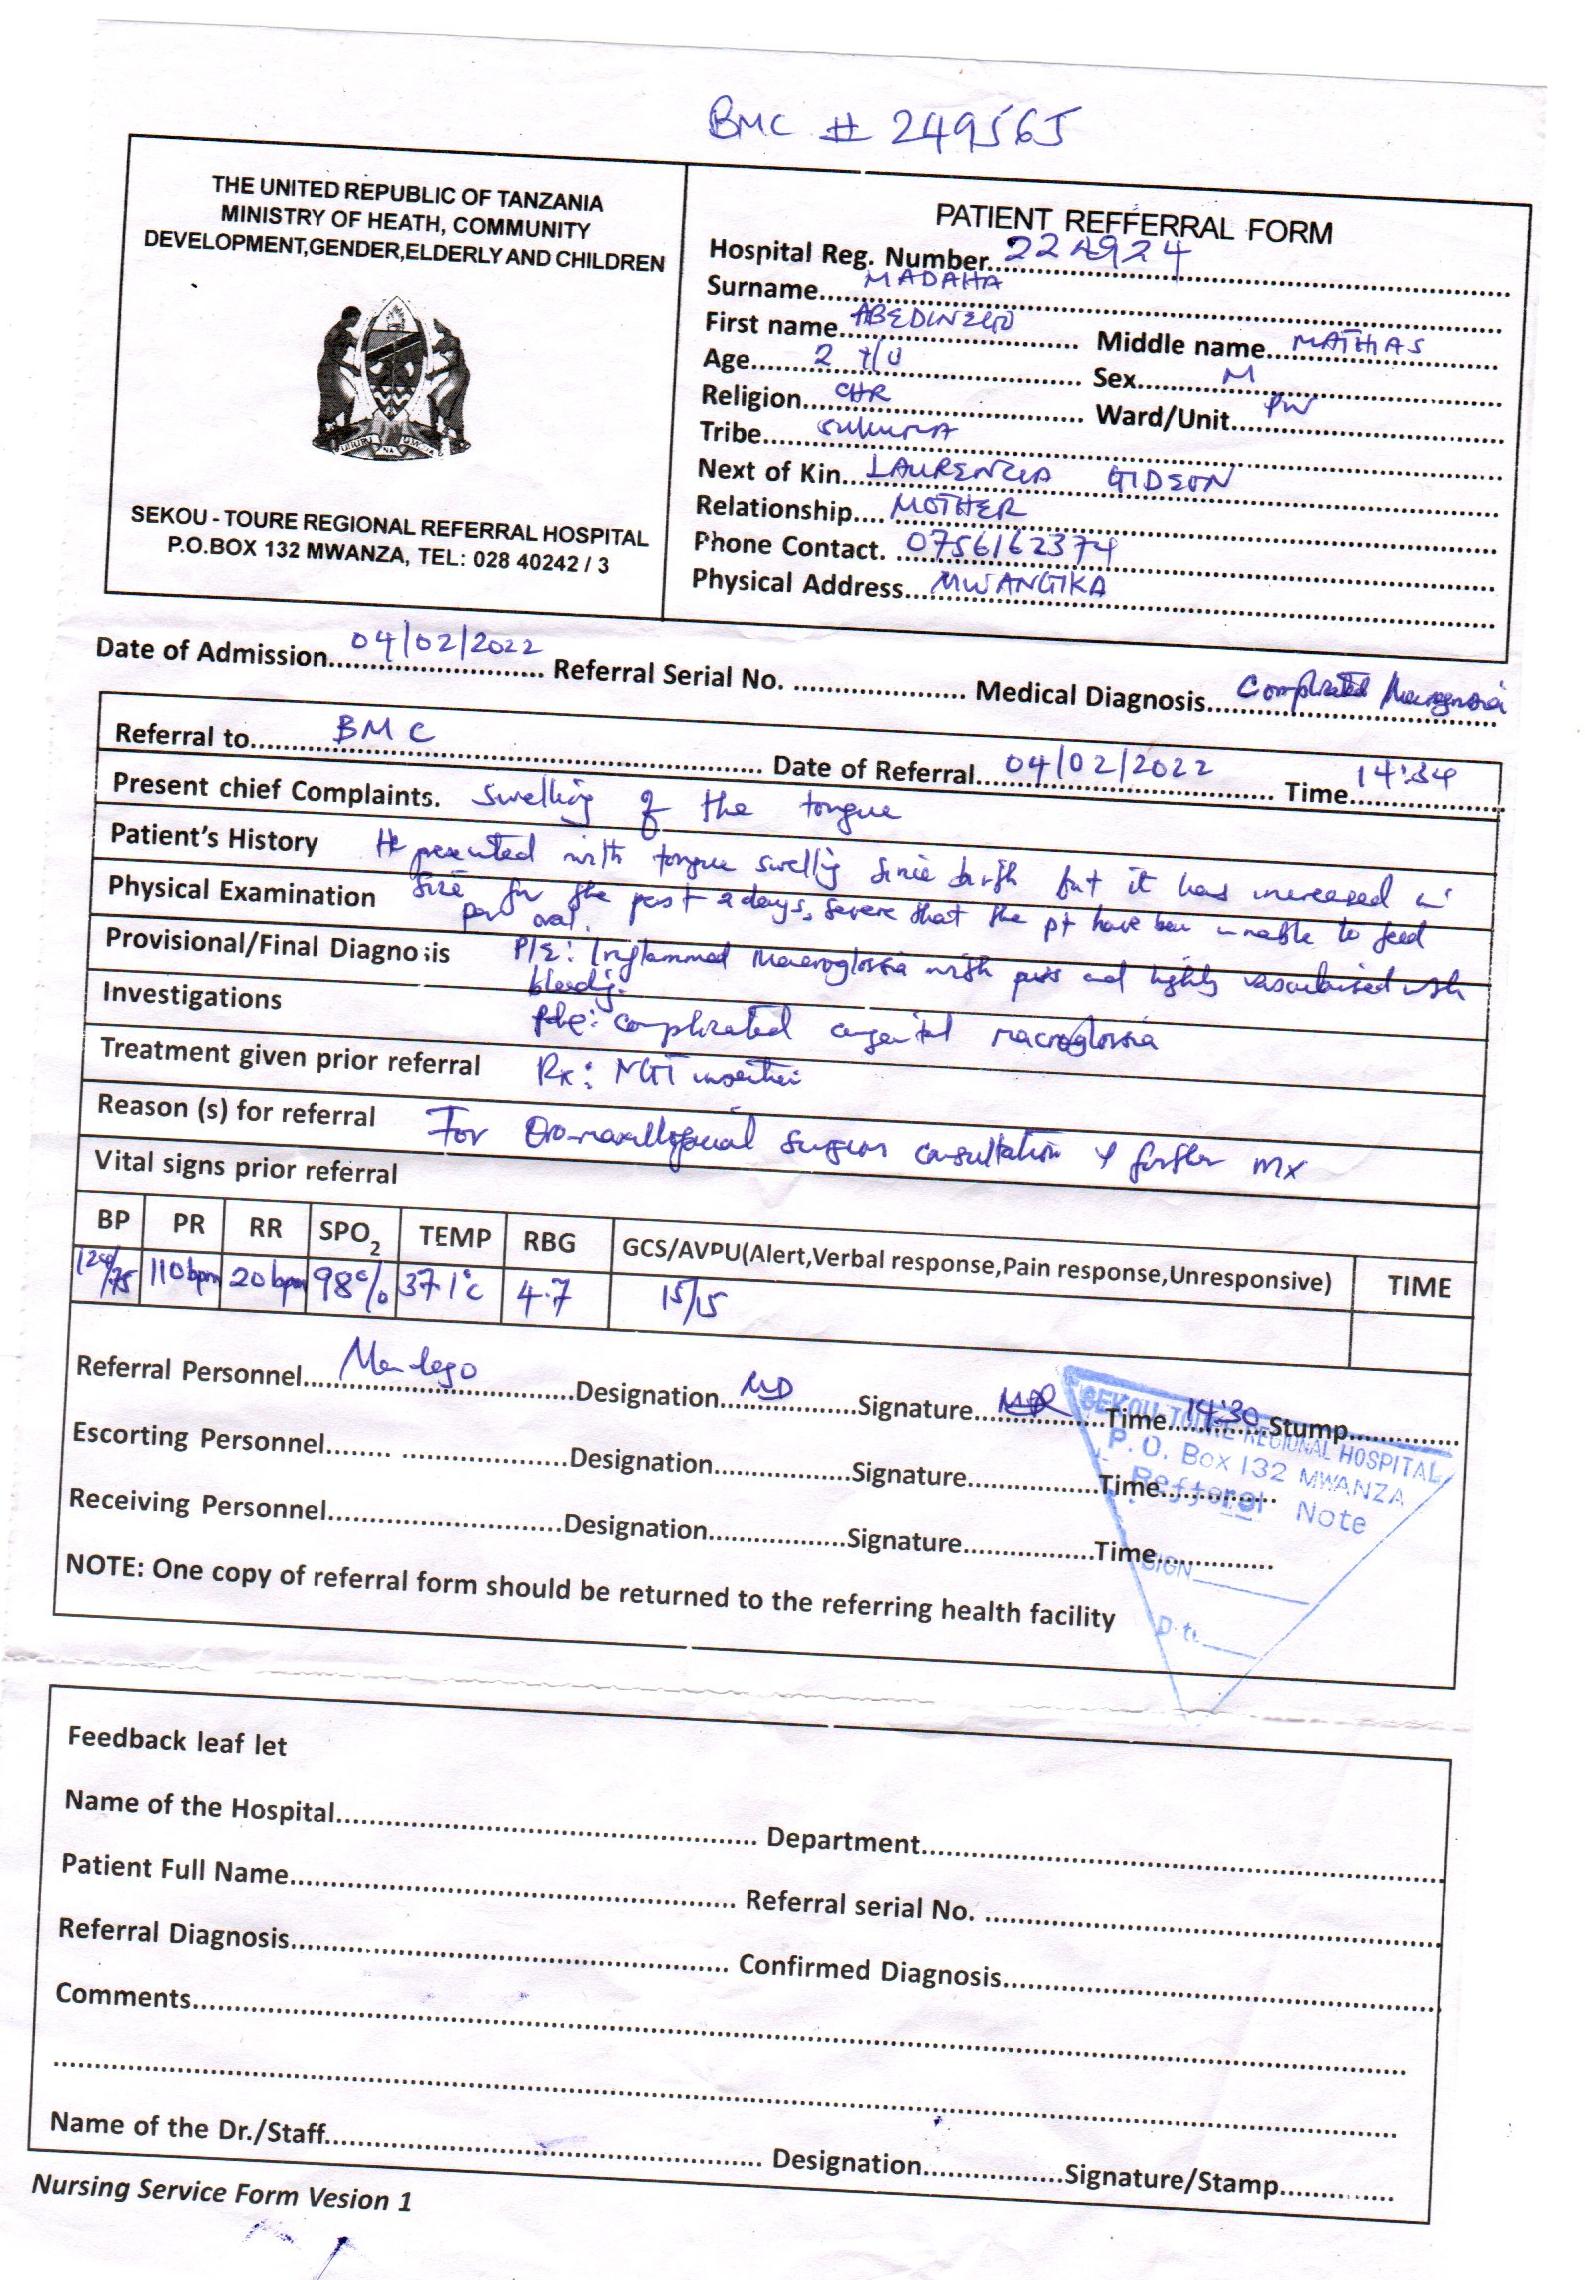 BMC # 249565
THE UNITED REPUBLIC OF TANZANIA
MINISTRY OF HEATH, COMMUNITY
DEVELOPMENT,GENDER,ELDERLY AND CHILDREN
SEKOU - TOURE REGIONAL REFERRAL HOSPITAL
P.O.BOX 132 MWANZA, TEL: 028 40242 / 3
PATIENT REFFERRAL FORM
Hospital Reg. Number
Surname MADAHA
First name Middle name MATHAS
Age 2 Y/O Sex M
Religion CHR Ward/Unit PW
Tribe SUKUMA
Next of Kin LAURENCIA GIDEON
Relationship MOTHER
Phone Contact. 0756162374
Physical Address MWANGIKA
Date of Admission 04/02/2022 Referral Serial No. Medical Diagnosis Complicated
Referral to BMC Date of Referral 04/02/2022 Time 14:34
Present chief Complaints. Swelling of the tongue
Patient's History He presented with tongue swelling since birth but it has increased in
Physical Examination size for the past 2 days, severe that the pt have been unable to feed
per oral.
Provisional/Final Diagnosis P/E: Inflammed Macroglossia with puss and highly vascularised with
bleeding.
Investigations complicated congenital macroglossia
Treatment given prior referral Rx: NGT insertion
Reason (s) for referral For Oro-maxillofacial surgeon consultation & further mx
Vital signs prior referral
BP PR RR SPO2 TEMP RBG GCS/AVPU(Alert,Verbal response,Pain response,Unresponsive) TIME
120/75 110bpm 20bpm 98% 37.1°c 4.7 15/15
Referral Personnel Designation MD Signature Time 14:30 Stump
Escorting Personnel Designation Signature Time
Receiving Personnel Designation Signature Time
NOTE: One copy of referral form should be returned to the referring health facility
SEKOU TOURE REGIONAL HOSPITAL
P. O. Box 132 MWANZA
Refferal Note
SIGN
Feedback leaf let
Name of the Hospital Department
Patient Full Name Referral serial No.
Referral Diagnosis Confirmed Diagnosis
Comments
Name of the Dr./Staff Designation Signature/Stamp
Nursing Service Form Vesion 1